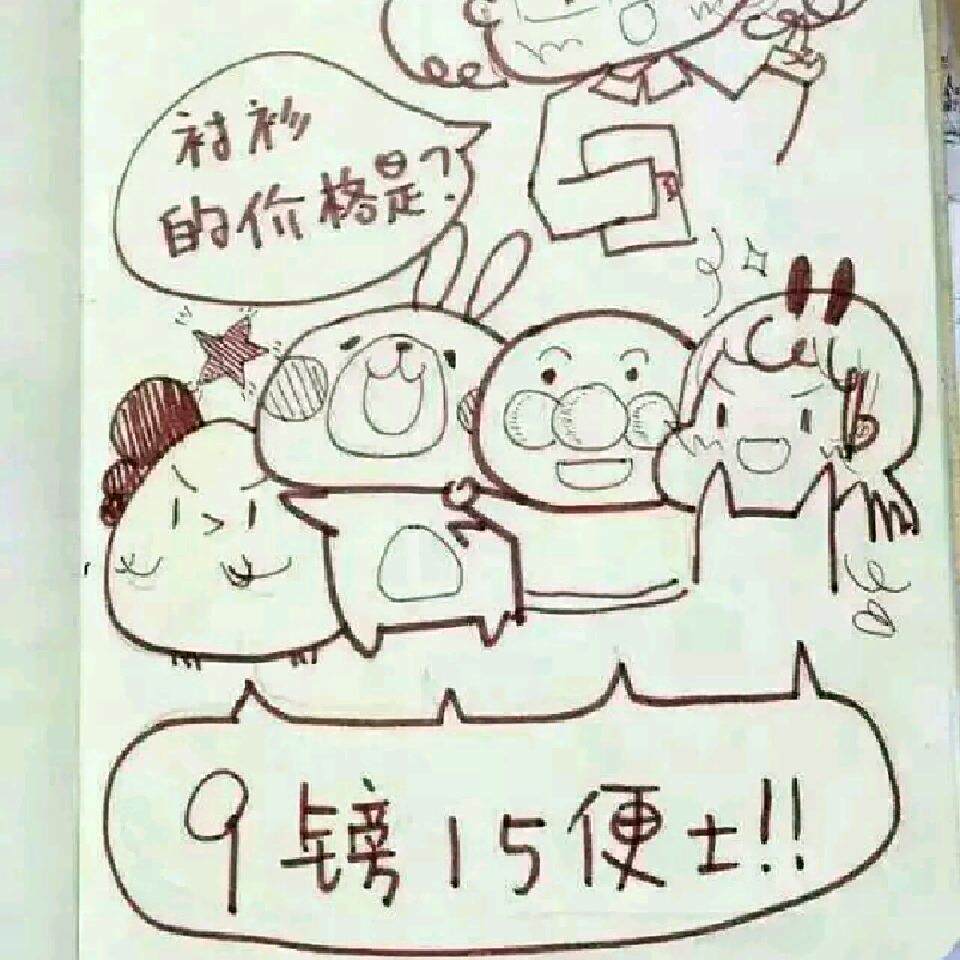 衬衫
的价格是?
9镑15便士!!